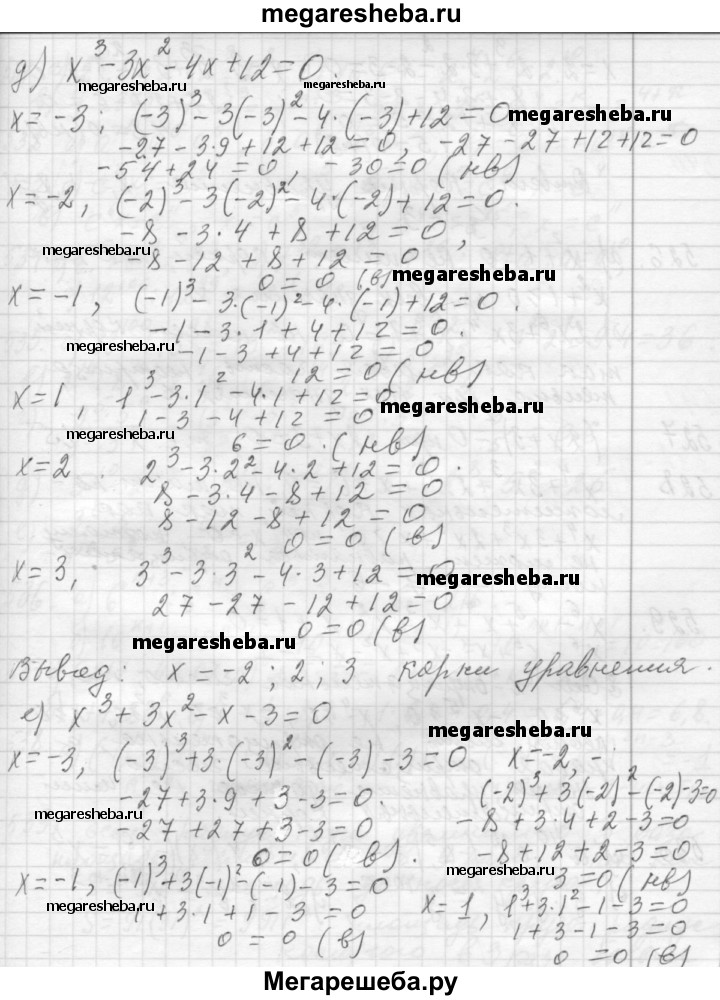 megaresheba.ru
д) x³ - 3x² - 4x + 12 = 0.
megaresheba.ru megaresheba.ru
x = -3; (-3)³ - 3(-3)² - 4·(-3) + 12 = 0 megaresheba.ru
-27 - 3·9 + 12 + 12 = 0, -27 - 27 + 12 + 12 = 0
-54 + 24 = 0, -30 = 0 (нв)
x = -2, (-2)³ - 3(-2)² - 4·(-2) + 12 = 0.
-8 - 3·4 + 8 + 12 = 0,
megaresheba.ru
-8 - 12 + 8 + 12 = 0
0 = 0 (в) megaresheba.ru
x = -1, (-1)³ - 3·(-1)² - 4·(-1) + 12 = 0.
-1 - 3·1 + 4 + 12 = 0.
megaresheba.ru
-1 - 3 + 4 + 12 = 0
12 = 0 (нв)
x = 1, 1³ - 3·1² - 4·1 + 12 = 0 megaresheba.ru
1 - 3 - 4 + 12 = 0
megaresheba.ru
6 = 0. (нв)
x = 2. 2³ - 3·2² - 4·2 + 12 = 0.
8 - 3·4 - 8 + 12 = 0
8 - 12 - 8 + 12 = 0
0 = 0 (в)
x = 3, 3³ - 3·3² - 4·3 + 12 = 0 megaresheba.ru
27 - 27 - 12 + 12 = 0
0 = 0 (в)
megaresheba.ru
Вывод: x = -2; 2; 3 корни уравнения.
е) x³ + 3x² - x - 3 = 0
megaresheba.ru
x = -3, (-3)³ + 3·(-3)² - (-3) - 3 = 0
-27 + 3·9 + 3 - 3 = 0.
megaresheba.ru
-27 + 27 + 3 - 3 = 0
0 = 0 (в).
x = -2,
(-2)³ + 3(-2)² - (-2) - 3 = 0
-8 + 3·4 + 2 - 3 = 0
-8 + 12 + 2 - 3 = 0
megaresheba.ru
3 = 0 (нв)
x = -1, (-1)³ + 3(-1)² - (-1) - 3 = 0
megaresheba.ru
-1 + 3·1 + 1 - 3 = 0
0 = 0 (в)
x = 1, 1³ + 3·1² - 1 - 3 = 0
megaresheba.ru
1 + 3 - 1 - 3 = 0
0 = 0 (в)
Мегарешеба.ру